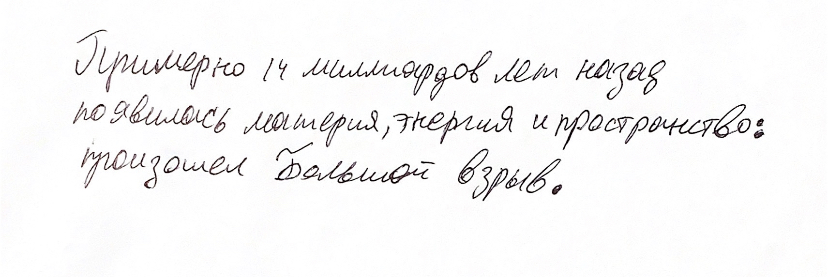 Примерно 14 миллиардов лет назад
появилась материя, энергия и пространство:
произошел Большой взрыв.